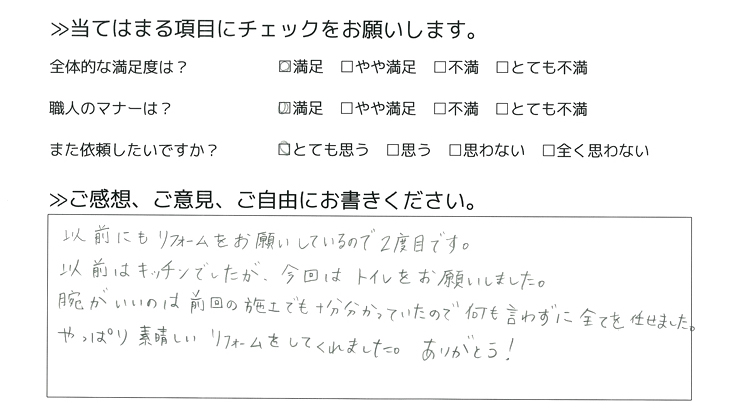 ≫当てはまる項目にチェックをお願いします。
全体的な満足度は? ☑満足 □やや満足 □不満 □とても不満
職人のマナーは? ☑満足 □やや満足 □不満 □とても不満
また依頼したいですか? ☑とても思う □思う □思わない □全く思わない
≫ご感想、ご意見、ご自由にお書きください。
以前にもリフォームをお願いしているので2度目です。
以前はキッチンでしたが、今回はトイレをお願いしました。
腕がいいのは前回の施工でも十分分かっていたので何も言わずに全てを任せました。
やっぱり素晴しいリフォームをしてくれました。ありがとう!